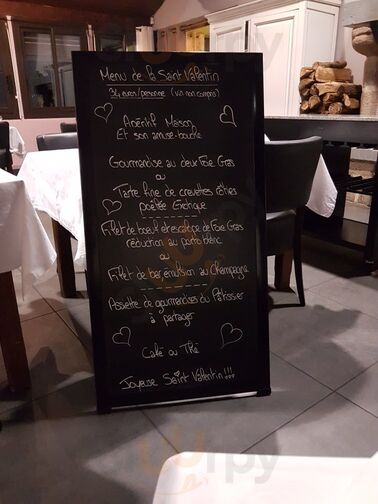 Menu de la Saint Valentin
34 euros/personne (vin non compris)
Apéritif Maison
Et son amuse-bouche
Gourmandise au deux Foie Gras
ou
Tarte fine de crevettes rôties
poêlée Exotique
Filet de boeuf et escalope de Foie Gras
réduction au porto blanc
ou
Filet de bar émulsion au Champagne
Assiette de gourmandises du Pâtissier
à partager
Café ou Thé
Joyeuse Saint Valentin!!!